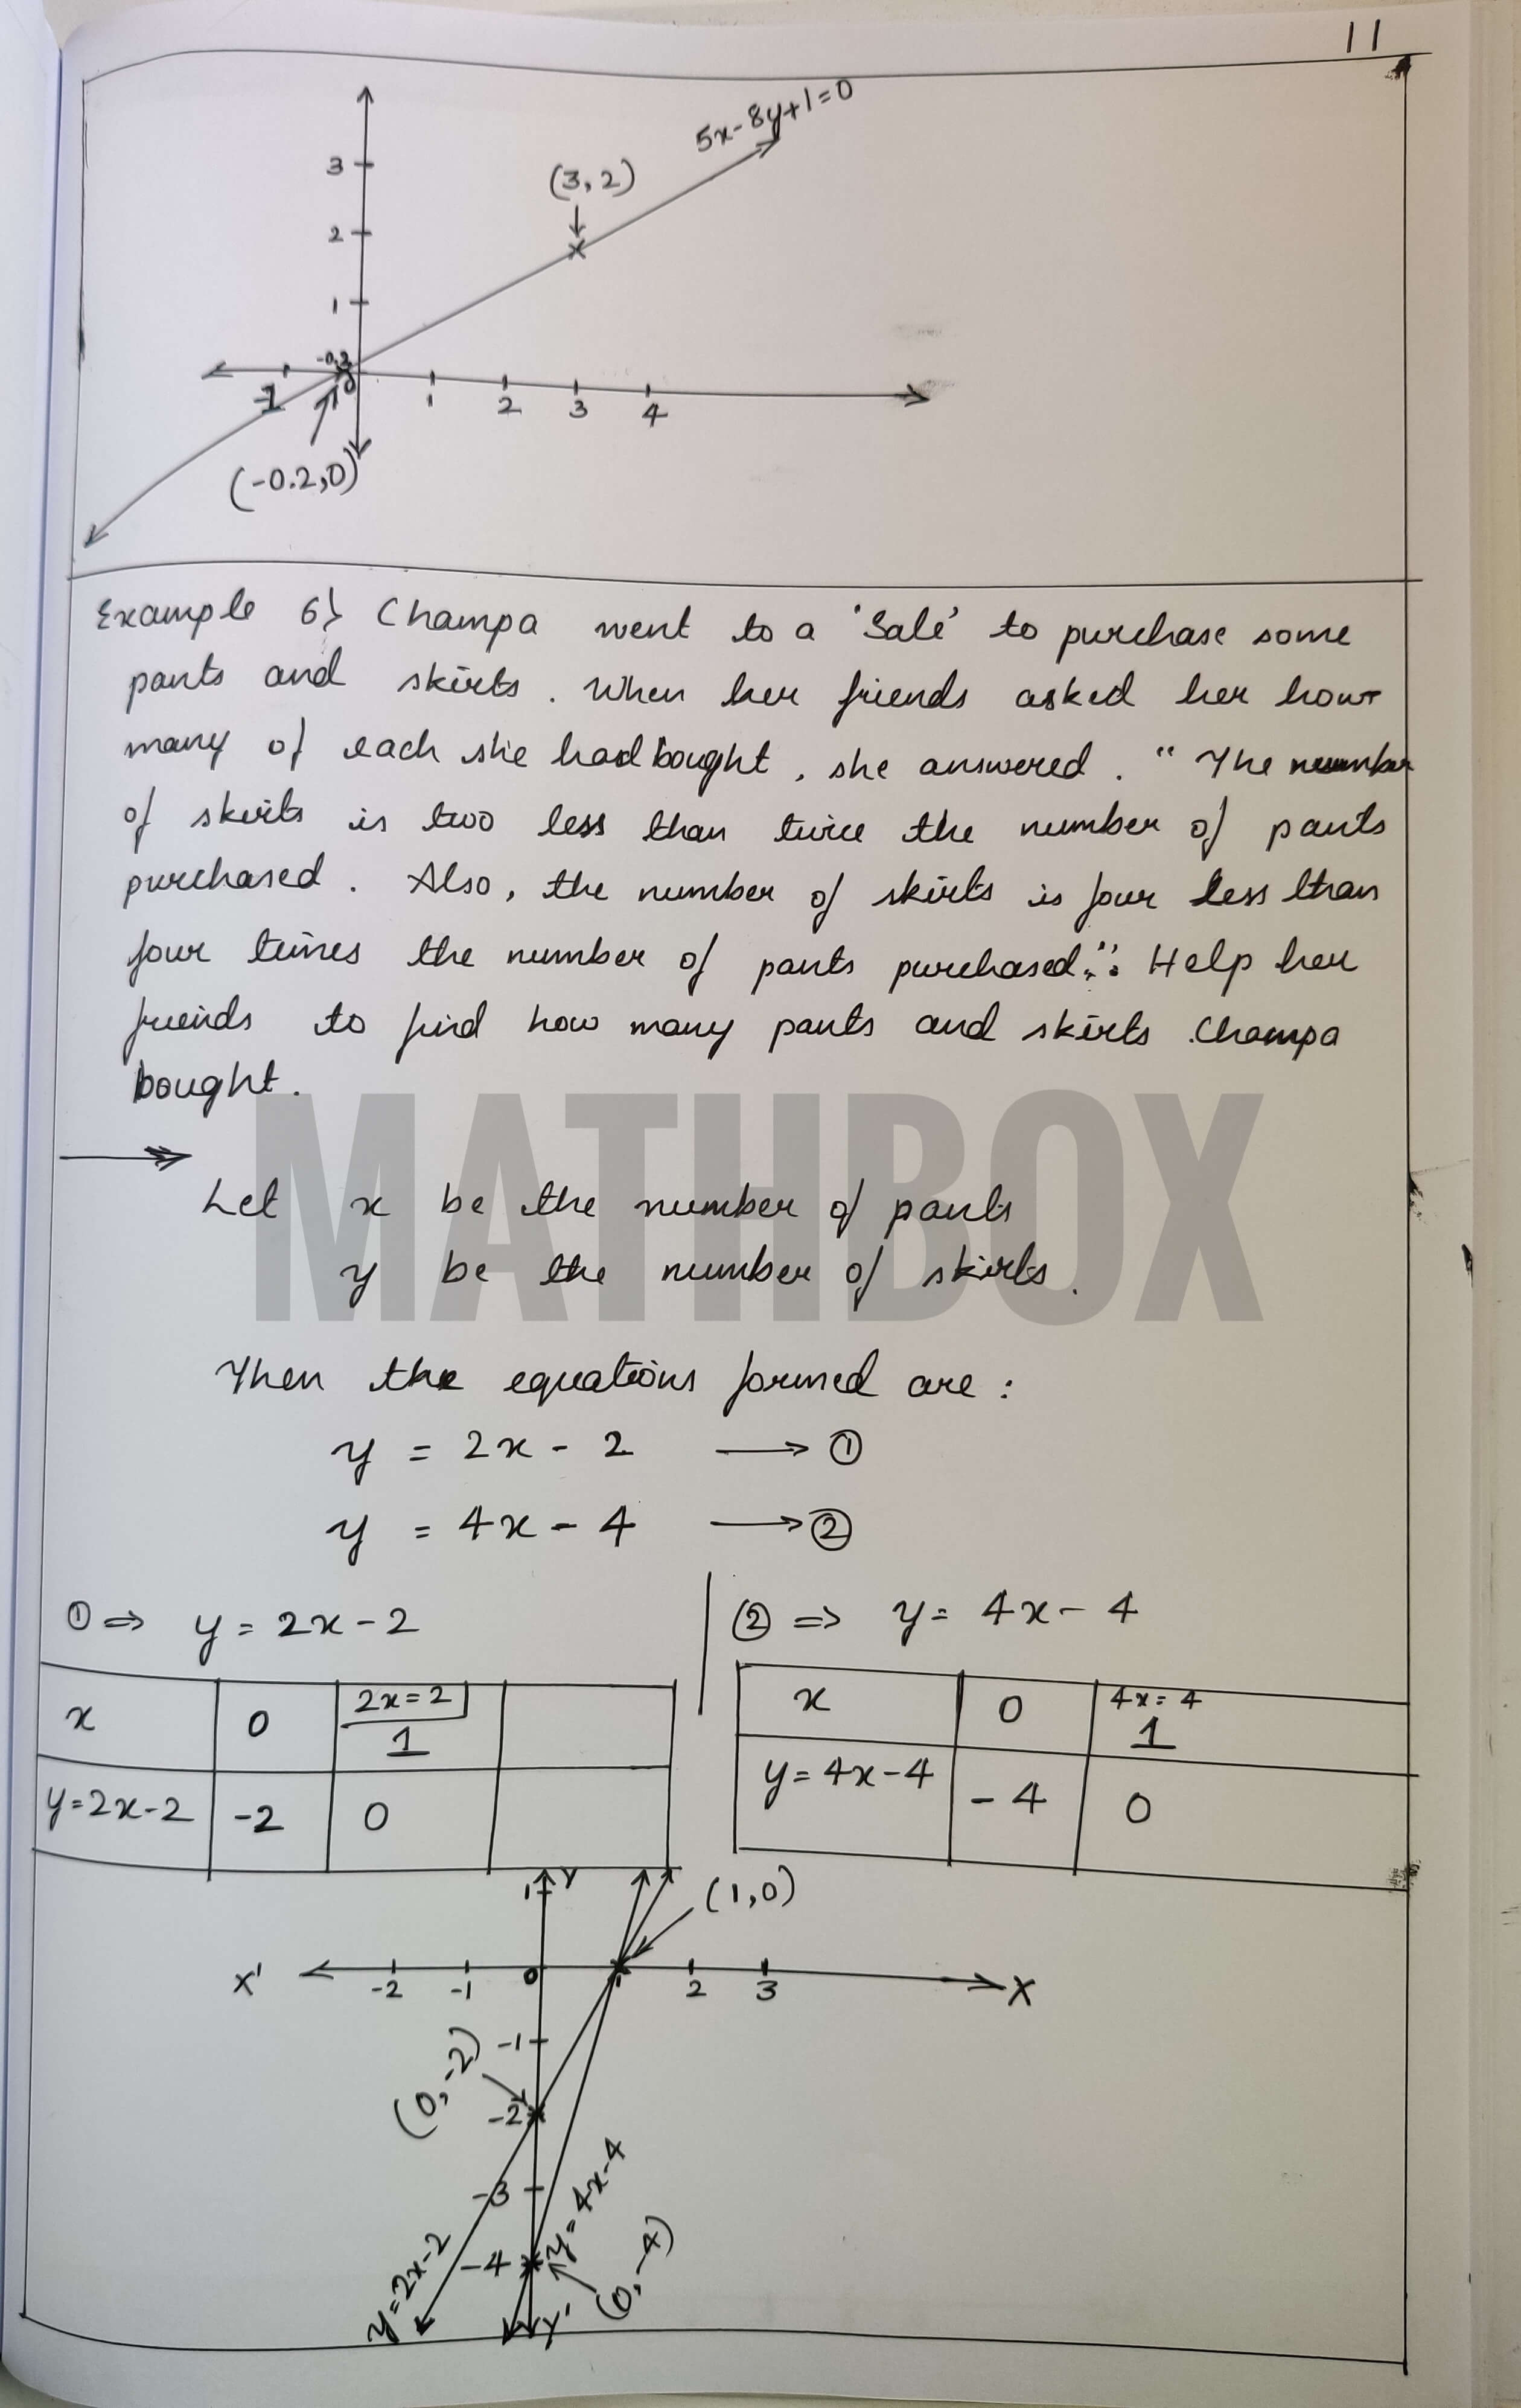 11
5x-8y+1=0
(3,2)
3
2
1
-0.2
0
-1
1 2 3 4
(-0.2,0)
Example 6} Champa went to a 'Sale' to purchase some
pants and skirts. When her friends asked her how
many of each she had bought, she answered. "The number
of skirts is two less than twice the number of pants
purchased. Also, the number of skirts is four less than
four times the number of pants purchased.". Help her
friends to find how many pants and skirts Champa
bought.
MATHBOX
Let x be the number of pants
y be the number of skirts.
Then the equations formed are:
y = 2x - 2 → ①
y = 4x - 4 → ②
① ⇒ y = 2x - 2
x 0 2x=2 1
y=2x-2 -2 0
② ⇒ y = 4x - 4
x 0 4x=4 1
y=4x-4 -4 0
Y
1
(1,0)
X' -2 -1 0 1 2 3 X
-1
(0,-2)
-2
-3
y=4x-4
-4
(0,-4)
y=2x-2
Y'